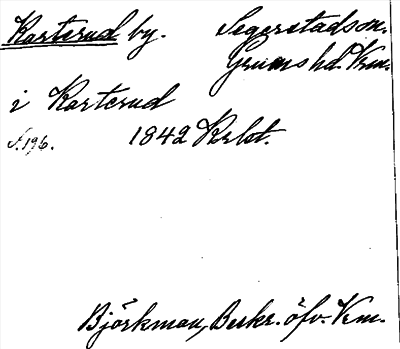 Karterud by. Segerstads sn.
Grums hd. Vrm.
i Karterud
s. 196. 1842 Krbt.
Björkman, Beskr. öfv. Vrm.